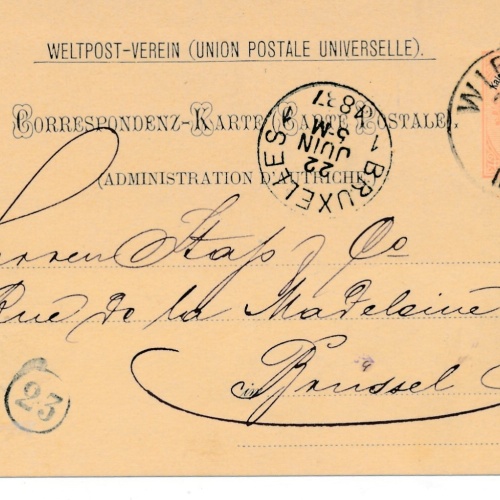 WELTPOST-VEREIN (UNION POSTALE UNIVERSELLE).
CORRESPONDENZ-KARTE (CARTE POSTALE)
(ADMINISTRATION D'AUTRICHE)
WI
BRUXELLES 1
22
JUIN
5 M
Herren Stap & Co
Rue de la Madeleine
in Brussel
23